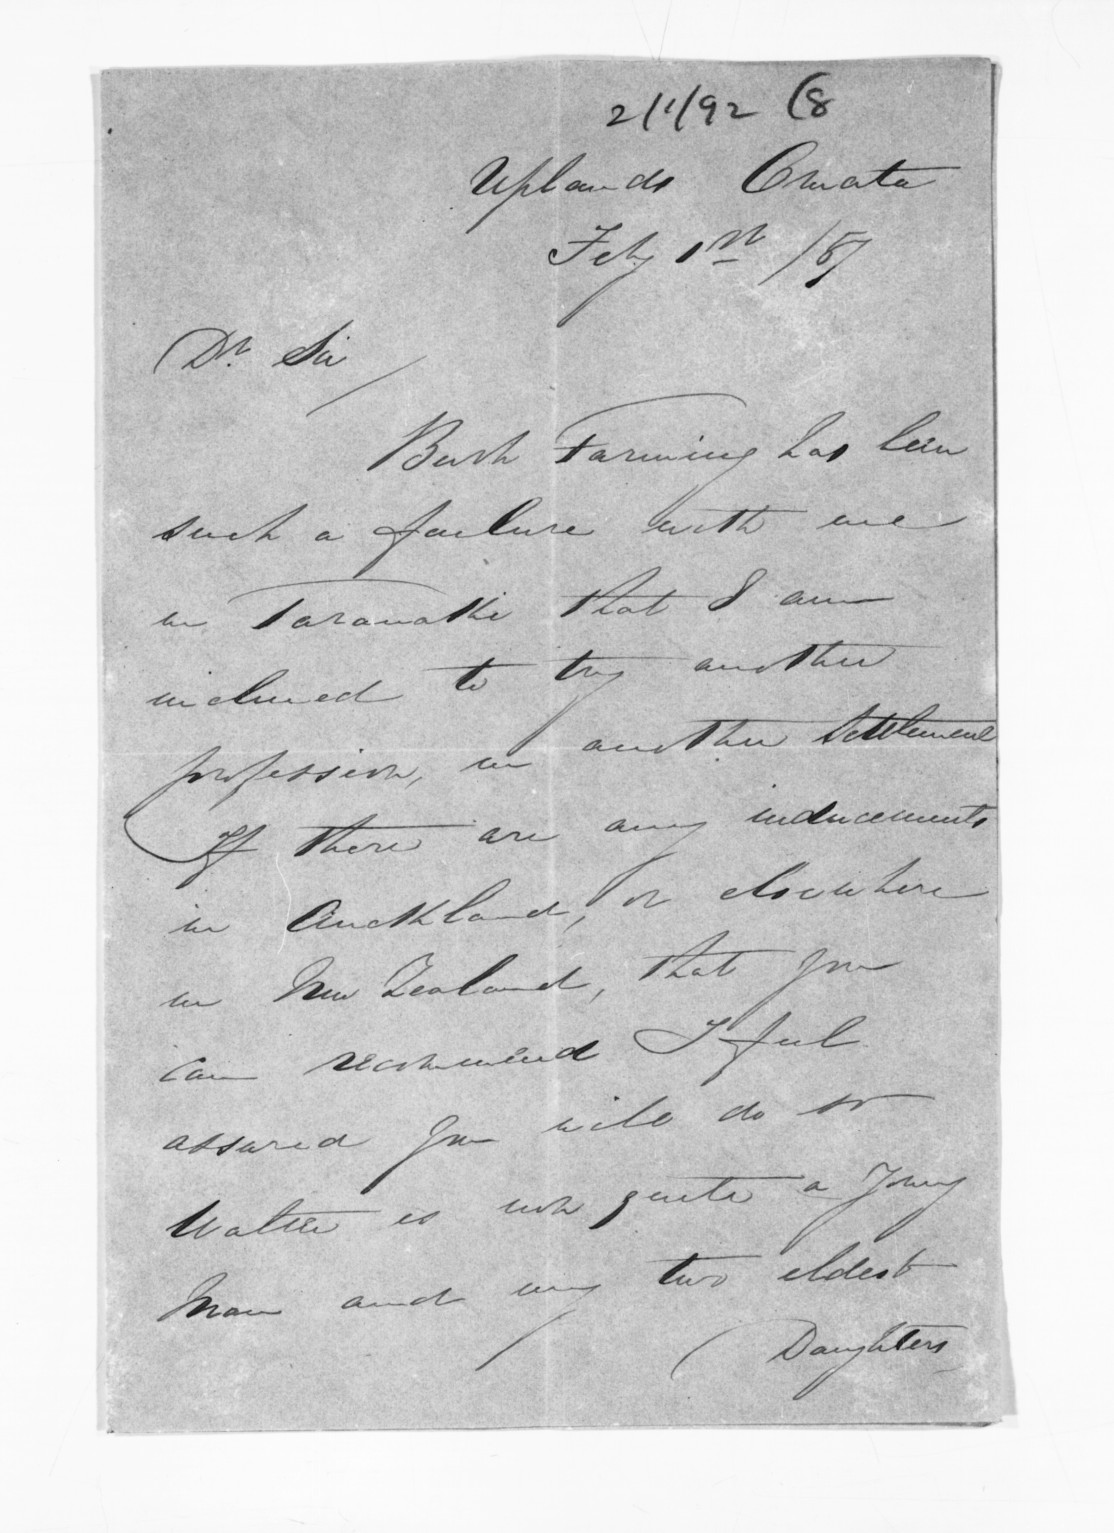 2/1/92 (8
Uplands Omata
Feby 1st /57
Dr. Sir
Bush Farming has been
such a failure with me
in Taranaki that I am
inclined to try another
profession, in another Settlement
If there are any inducements
in Auckland, or elsewhere
in New Zealand, that you
can recommend I feel
assured you will do so
Walter is now quite a Young
Man and my two eldest
Daughters